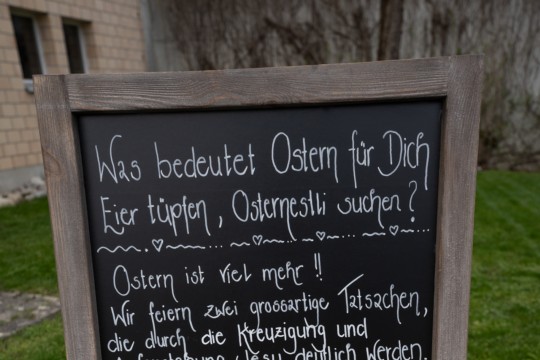 Was bedeutet Ostern für Dich
Eier tüpfen, Osternestli suchen?
Ostern ist viel mehr !!
Wir feiern zwei grossartige Tatsachen,
die durch die Kreuzigung und
Auferstehung Jesu deutlich werden.